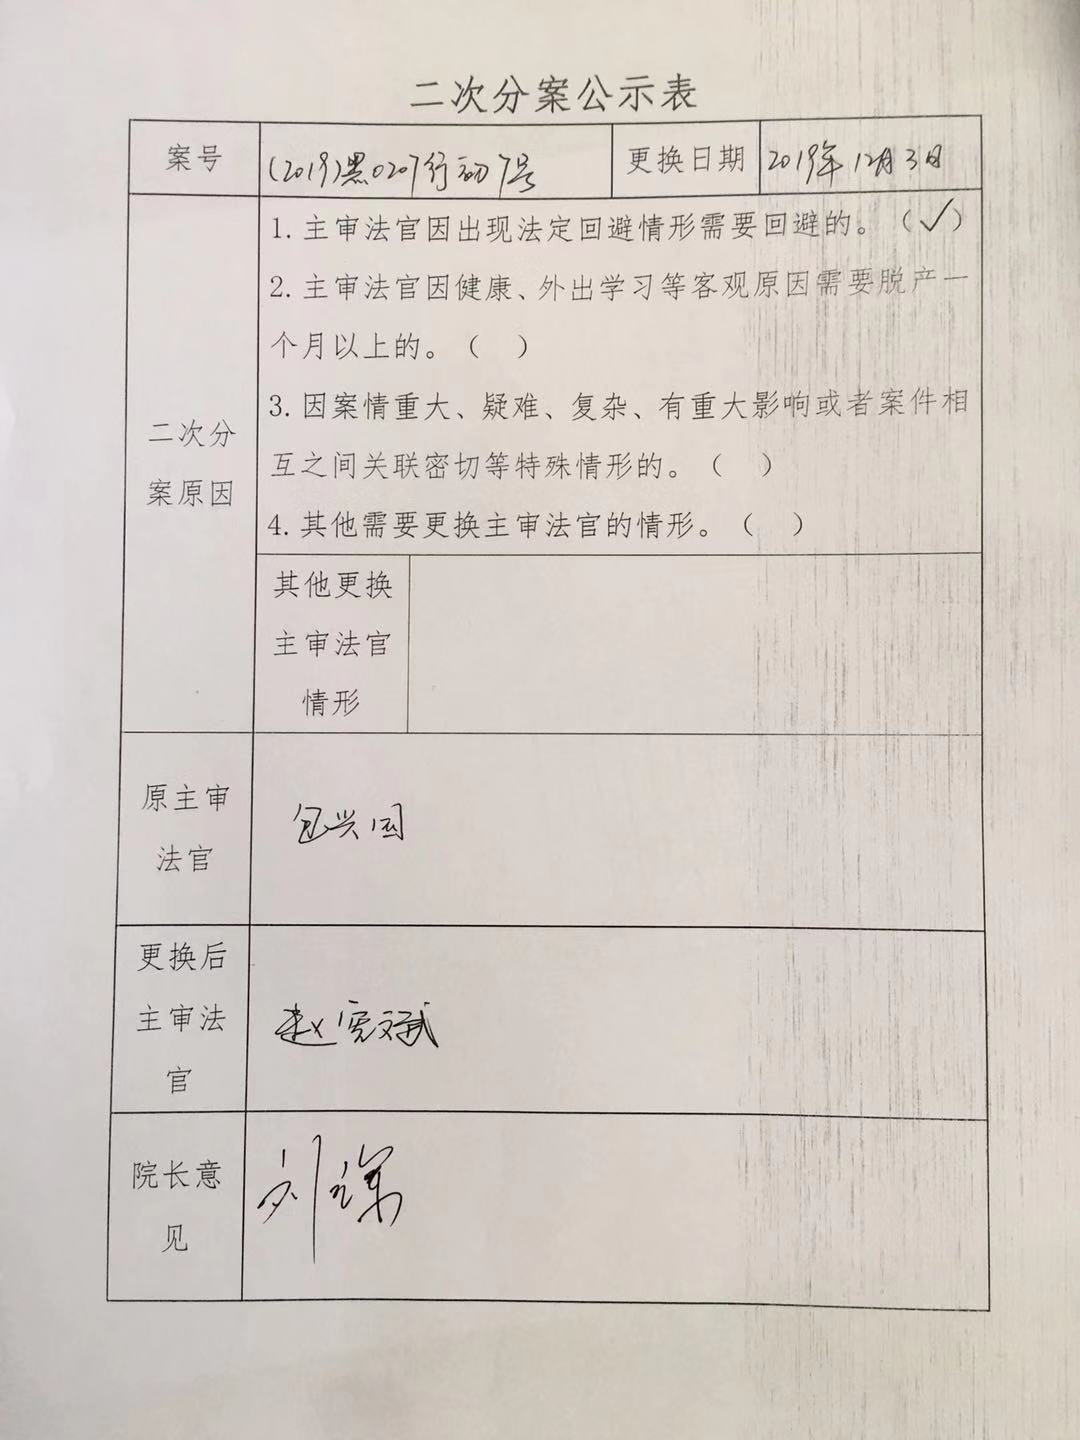 二次分案公示表
案号
(2019)黑0207行初7号
更换日期
2019年12月3日
二次分
案原因
1.主审法官因出现法定回避情形需要回避的。（✓）
2.主审法官因健康、外出学习等客观原因需要脱产一
个月以上的。（ ）
3.因案情重大、疑难、复杂、有重大影响或者案件相
互之间关联密切等特殊情形的。（ ）
4.其他需要更换主审法官的情形。（ ）
其他更换
主审法官
情形
原主审
法官
包兴国
更换后
主审法
官
赵宪斌
院长意
见
刘